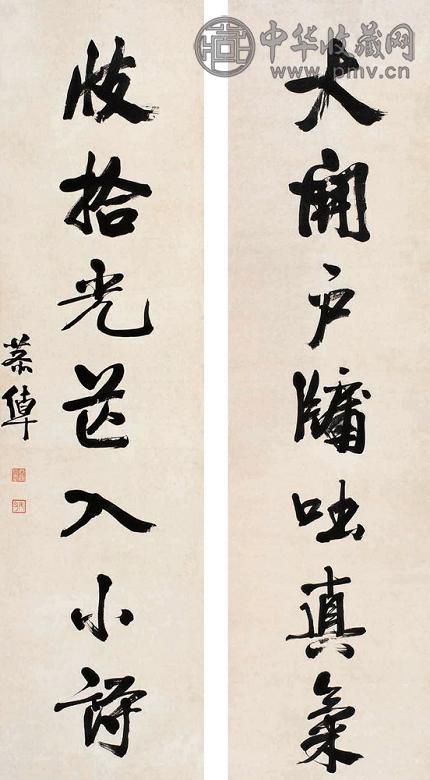 中华收藏网
www.pmv.cn
大開戶牖吐真氣
收拾光芒入小詩